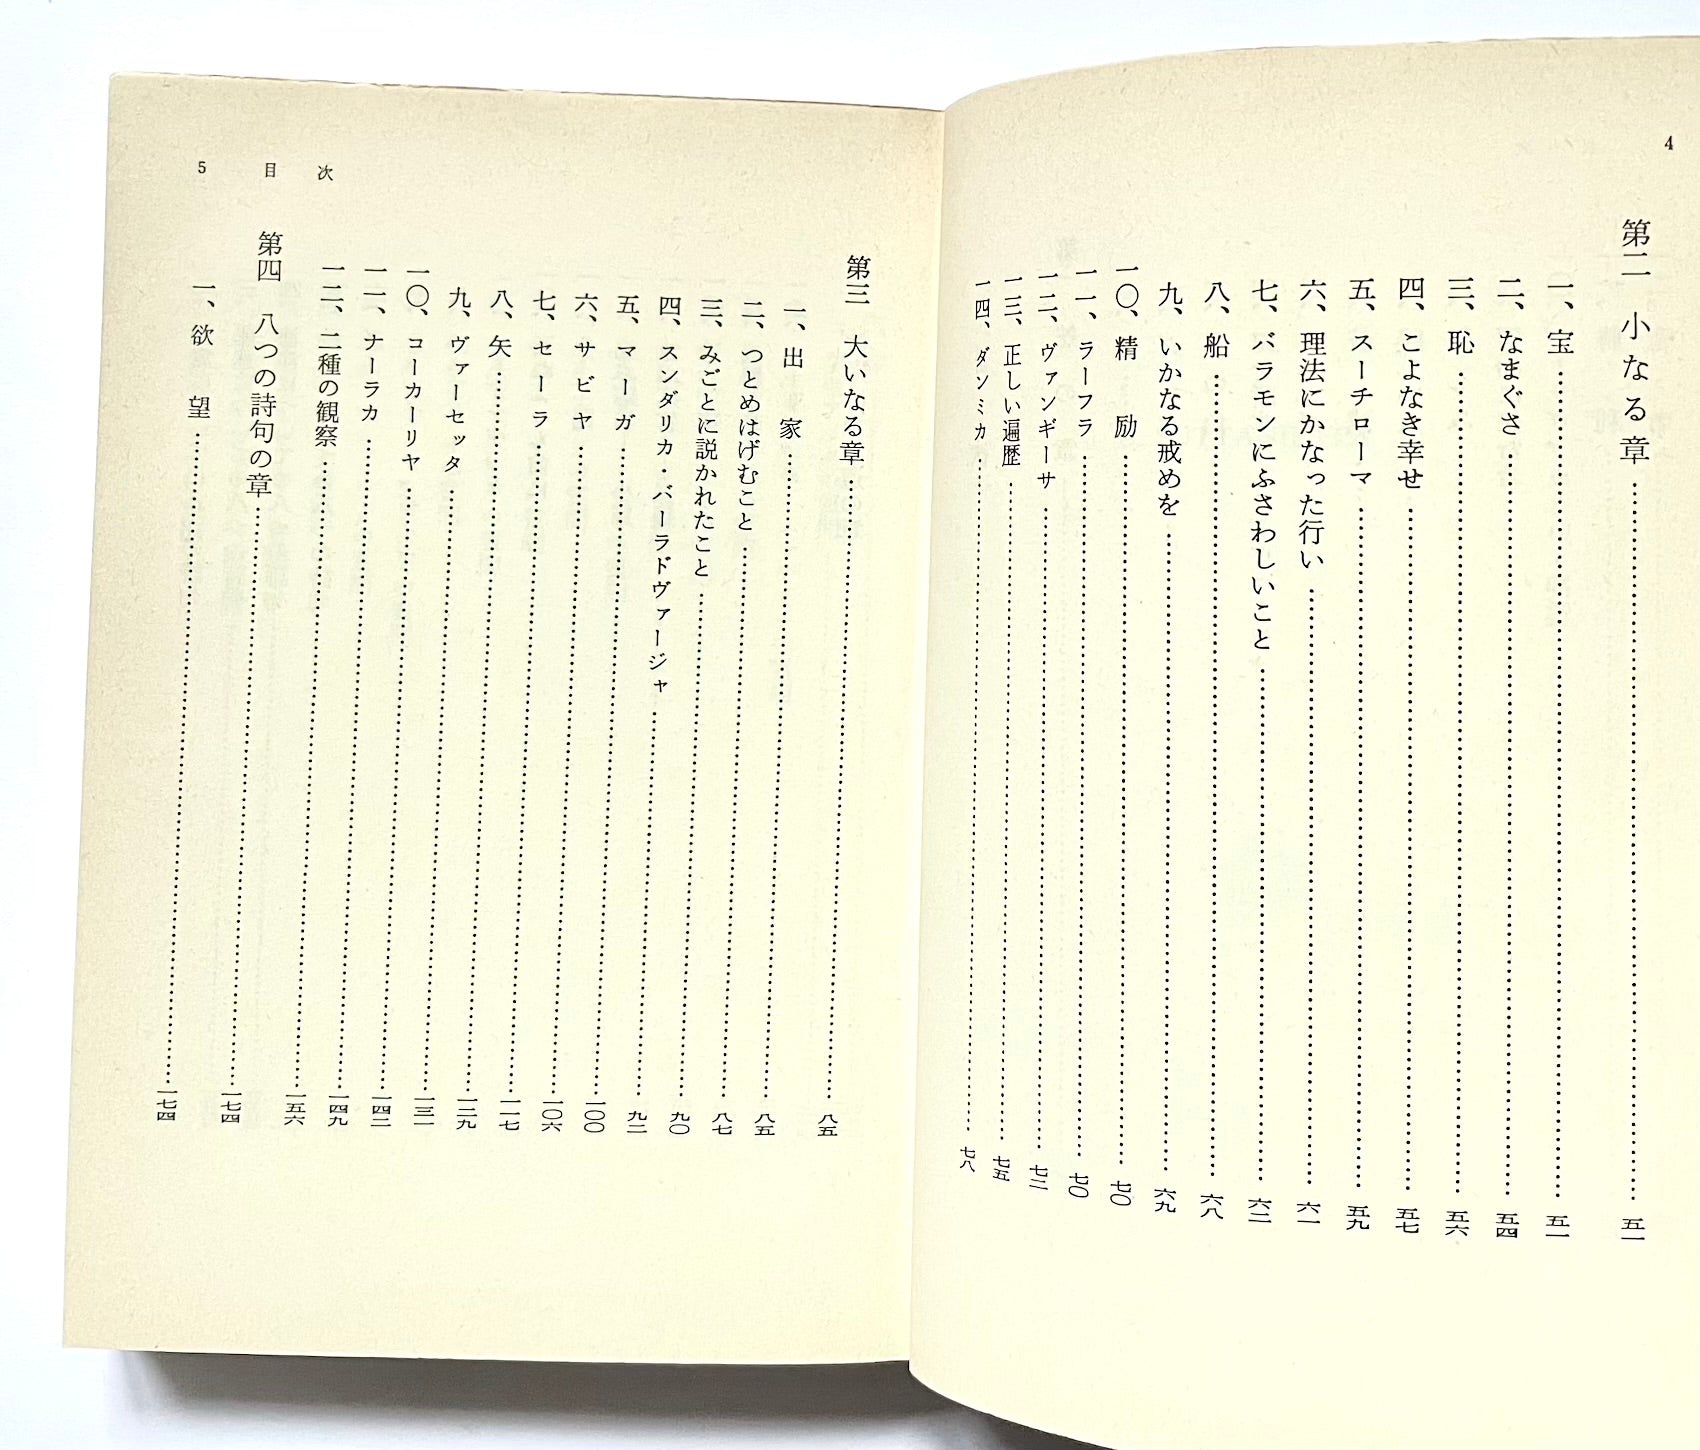 4
第二 小なる章……五一
一、宝……五一
二、なまぐさ……五四
三、恥……五六
四、こよなき幸せ……五七
五、スーチローマ……五九
六、理法にかなった行い……六一
七、バラモンにふさわしいこと……六二
八、船……六八
九、いかなる戒めを……六九
一〇、精励……七〇
一一、ラーフラ……七〇
一二、ヴァンギーサ……七二
一三、正しい遍歴……七五
一四、ダンミカ……七八
5 目次
第三 大いなる章……八五
一、出家……八五
二、つとめはげむこと……八七
三、みごとに説かれたこと……九〇
四、スンダリカ・バーラドヴァージャ……九二
五、マーガ……一〇〇
六、サビヤ……一〇六
七、セーラ……一一七
八、矢……一二九
九、ヴァーセッタ……一三一
一〇、コーカーリヤ……一四二
一一、ナーラカ……一四九
一二、二種の観察……一五六
第四 八つの詩句の章……一七四
一、欲望……一七四